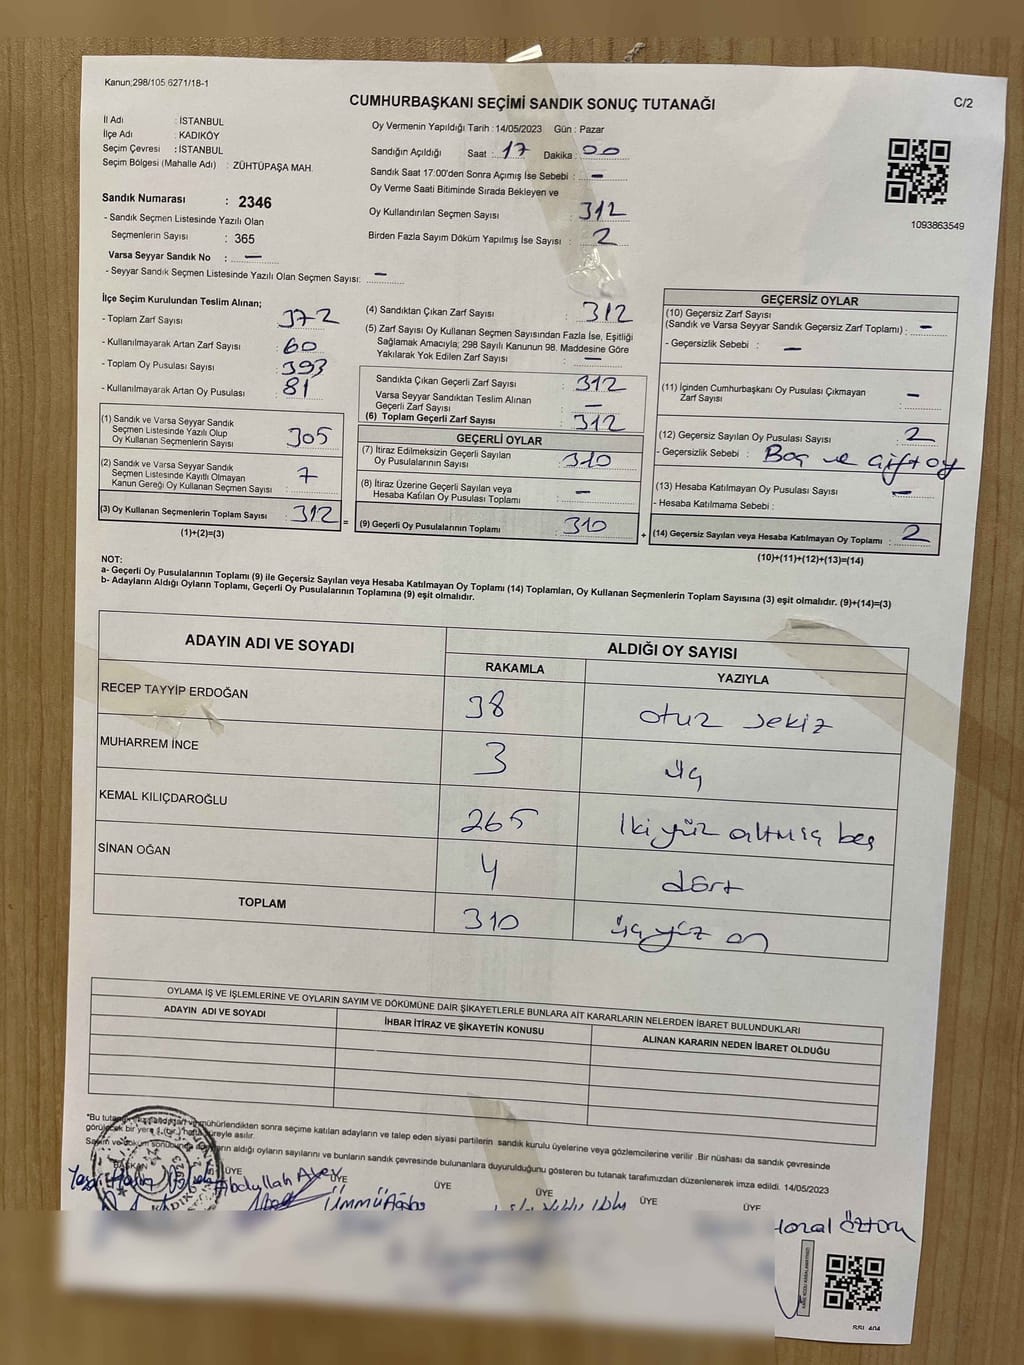 Kanun:298/105 6271/18-1
CUMHURBAŞKANI SEÇİMİ SANDIK SONUÇ TUTANAĞI
C/2
İl Adı : İSTANBUL
İlçe Adı : KADIKÖY
Seçim Çevresi : İSTANBUL
Seçim Bölgesi (Mahalle Adı) : ZÜHTÜPAŞA MAH.
Sandık Numarası : 2346
- Sandık Seçmen Listesinde Yazılı Olan
Seçmenlerin Sayısı : 365
Varsa Seyyar Sandık No : —
- Seyyar Sandık Seçmen Listesinde Yazılı Olan Seçmen Sayısı: —
Oy Vermenin Yapıldığı Tarih : 14/05/2023 Gün : Pazar
Sandığın Açıldığı Saat : 17 Dakika : 00
Sandık Saat 17:00'den Sonra Açımış İse Sebebi : —
Oy Verme Saati Bitiminde Sırada Bekleyen ve
Oy Kullandırılan Seçmen Sayısı : 312
Birden Fazla Sayım Döküm Yapılmış İse Sayısı : 2
1093863549
İlçe Seçim Kurulundan Teslim Alınan;
- Toplam Zarf Sayısı : 372
- Kullanılmayarak Artan Zarf Sayısı : 60
- Toplam Oy Pusulası Sayısı : 393
- Kullanılmayarak Artan Oy Pusulası : 81
(1) Sandık ve Varsa Seyyar Sandık
Seçmen Listesinde Yazılı Olup
Oy Kullanan Seçmenlerin Sayısı : 305
(2) Sandık ve Varsa Seyyar Sandık
Seçmen Listesinde Kayıtlı Olmayan
Kanun Gereği Oy Kullanan Seçmen Sayısı : 7
(3) Oy Kullanan Seçmenlerin Toplam Sayısı : 312
(1)+(2)=(3)
(4) Sandıktan Çıkan Zarf Sayısı : 312
(5) Zarf Sayısı Oy Kullanan Seçmen Sayısından Fazla İse, Eşitliği
Sağlamak Amacıyla; 298 Sayılı Kanunun 98. Maddesine Göre
Yakılarak Yok Edilen Zarf Sayısı : —
Sandıkta Çıkan Geçerli Zarf Sayısı : 312
Varsa Seyyar Sandıktan Teslim Alınan
Geçerli Zarf Sayısı : —
(6) Toplam Geçerli Zarf Sayısı : 312
GEÇERLİ OYLAR
(7) İtiraz Edilmeksizin Geçerli Sayılan
Oy Pusulalarının Sayısı : 310
(8) İtiraz Üzerine Geçerli Sayılan veya
Hesaba Katılan Oy Pusulası Toplamı : —
= (9) Geçerli Oy Pusulalarının Toplamı : 310
GEÇERSİZ OYLAR
(10) Geçersiz Zarf Sayısı
(Sandık ve Varsa Seyyar Sandık Geçersiz Zarf Toplamı) : —
- Geçersizlik Sebebi : —
(11) İçinden Cumhurbaşkanı Oy Pusulası Çıkmayan
Zarf Sayısı : —
(12) Geçersiz Sayılan Oy Pusulası Sayısı : 2
- Geçersizlik Sebebi : Boş ve çift oy
(13) Hesaba Katılmayan Oy Pusulası Sayısı : —
- Hesaba Katılmama Sebebi :
+ (14) Geçersiz Sayılan veya Hesaba Katılmayan Oy Toplamı : 2
(10)+(11)+(12)+(13)=(14)
NOT:
a- Geçerli Oy Pusulalarının Toplamı (9) ile Geçersiz Sayılan veya Hesaba Katılmayan Oy Toplamı (14) Toplamları, Oy Kullanan Seçmenlerin Toplam Sayısına (3) eşit olmalıdır. (9)+(14)=(3)
b- Adayların Aldığı Oyların Toplamı, Geçerli Oy Pusulalarının Toplamına (9) eşit olmalıdır.
ADAYIN ADI VE SOYADI ALDIĞI OY SAYISI
RAKAMLA YAZIYLA
RECEP TAYYİP ERDOĞAN 38 otuz sekiz
MUHARREM İNCE 3 üç
KEMAL KILIÇDAROĞLU 265 İki yüz altmış beş
SİNAN OĞAN 4 dört
TOPLAM 310 üç yüz on
OYLAMA İŞ VE İŞLEMLERİNE VE OYLARIN SAYIM VE DÖKÜMÜNE DAİR ŞİKAYETLERLE BUNLARA AİT KARARLARIN NELERDEN İBARET BULUNDUKLARI
ADAYIN ADI VE SOYADI İHBAR İTİRAZ VE ŞİKAYETİN KONUSU ALINAN KARARIN NEDEN İBARET OLDUĞU
mühürlendikten sonra seçime katılan adayların ve talep eden siyasi partilerin sandık kurulu üyelerine veya gözlemcilerine verilir .Bir nüshası da sandık çevresinde
görülecek bir yere süreyle asılır.
aldığı oyların sayılarını ve bunların sandık çevresinde bulunanlara duyurulduğunu gösteren bu tutanak tarafımızdan düzenlenerek imza edildi. 14/05/2023
BAŞKAN ÜYE ÜYE ÜYE ÜYE ÜYE ÜYE
Abdullah
Ümmü
ÖZTÜRK